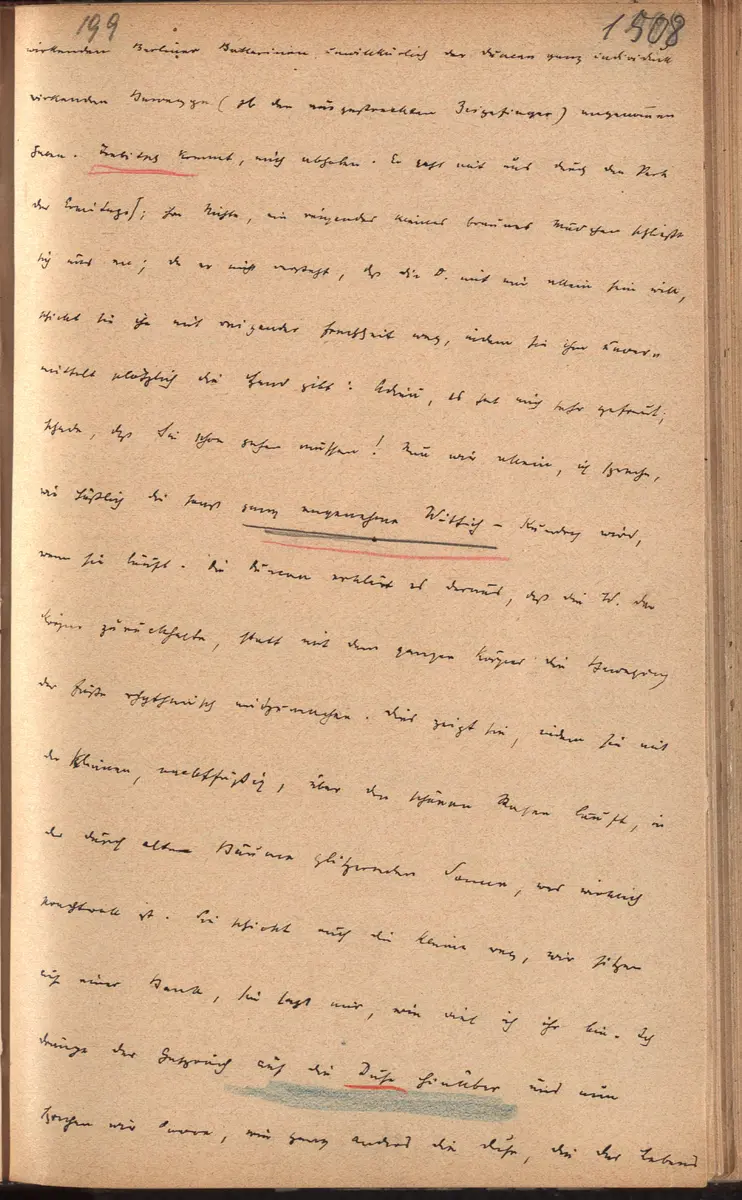 199 1508
wirkenden Berliner Ballerinen unwillkürlich der Duncan ganz individuell
wirkenden Bewegungen (zB den ausgestreckten Zeigefinger) angenommen
haben. kommt, mich abholen. Er geht mit uns durch den Park
der Ermitage]; ihre Nichte, ein reizendes kleines braunes Mädchen schließt
sich uns an; da er nicht versteht, daß die D. mit mir allein sein will,
schickt sie ihn mit reizender Frechheit weg, indem sie ihm unver-
mittelt plötzlich die Hand gibt: Adieu, es hat mich sehr gefreut;
schade, daß Sie schon gehen müssen! Nun wir allein, ich spreche,
wie häßlich die sonst ganz angenehme Wittich-Kundry wird,
wenn sie läuft. Die Duncan erklärt es daraus, daß die W. den
Körper zurückhalte, statt mit dem ganzen Körper die Bewegung
der Füße rhythmisch mitzumachen. Dies zeigt sie, indem sie mit
der Kleinen, nacktfüßig, über den schönen Rasen läuft, in
der durch alte Bäume glitzernden Sonne, was wirklich
prachtvoll ist. Sie schickt auch die Kleine weg, wir sitzen
auf einer Bank, sie sagt mir, wie viel ich ihr bin. Ich
dränge das Gespräch auf die Duse hinüber und nun
sprechen wir davon, wie ganz anders die Duse, die das Leben